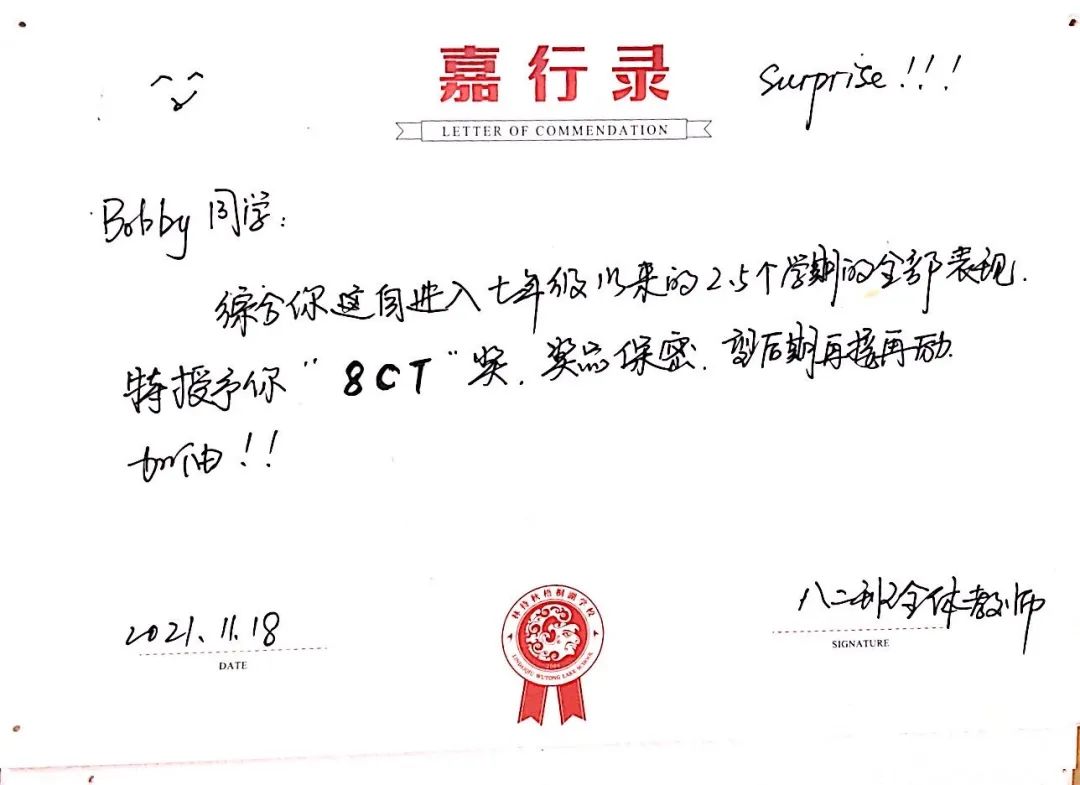 嘉行录
Surprise!!!
LETTER OF COMMENDATION
Bobby 同学:
综合你这自进入七年级以来的2.5个学期的全部表现.
特授予你“8CT”奖.奖品保密.望后期再接再励.
加油!!
2021.11.18
DATE
林荫秋梧桐湖学校
WUTONG LAKE SCHOOL
八二班全体教师
SIGNATURE